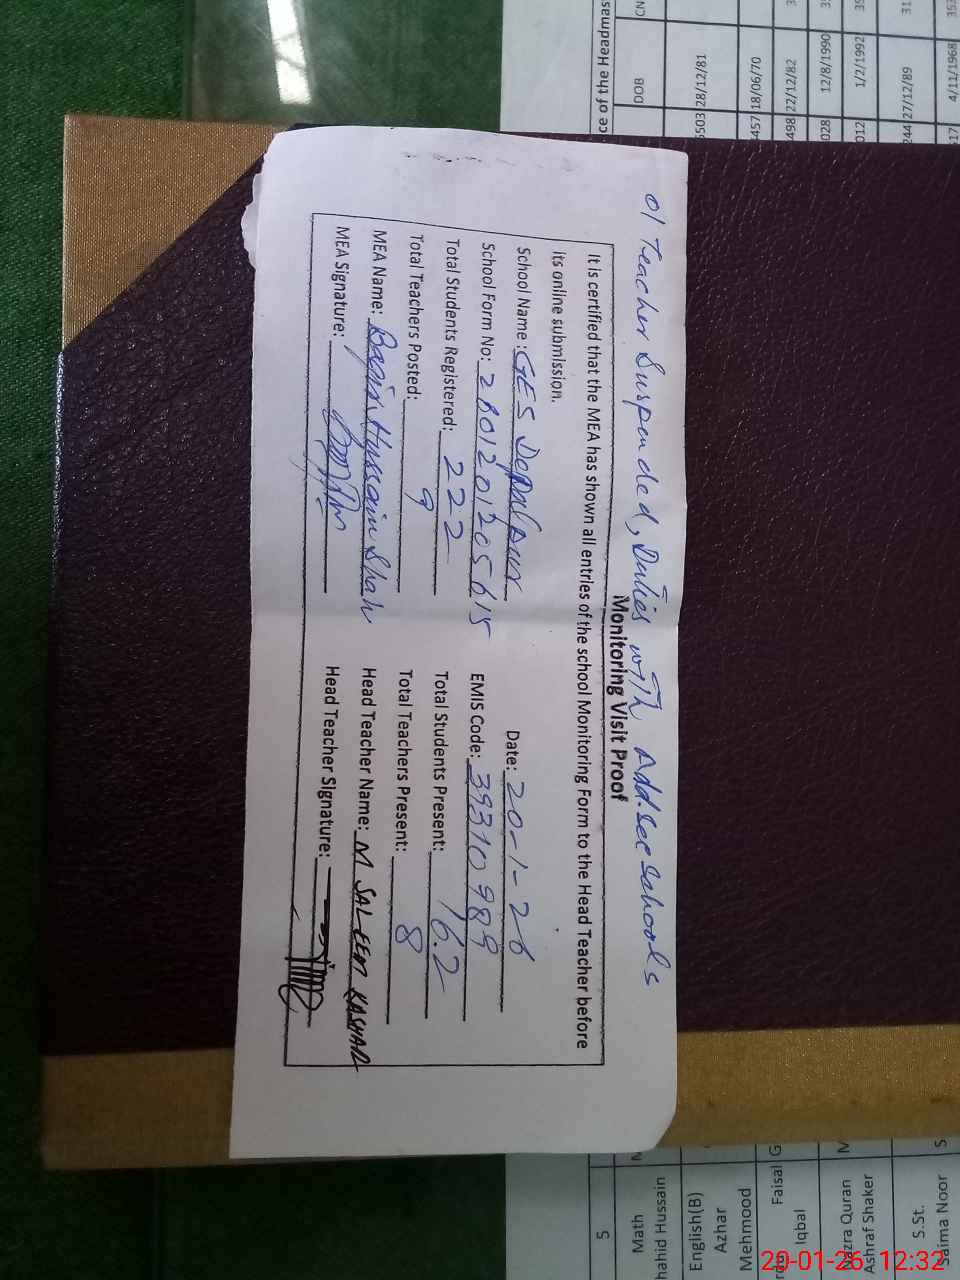 01 Teacher Suspended, Duties with Add. see schools
Monitoring Visit Proof
It is certified that the MEA has shown all entries of the school Monitoring Form to the Head Teacher before
its online submission.
School Name: GES Depalpur Date: 20-1-26
School Form No: 2B01201205615 EMIS Code: 39310989
Total Students Registered: 222 Total Students Present: 162
Total Teachers Posted: 9 Total Teachers Present: 8
MEA Name: Hussain Shah Head Teacher Name: M SALEEM
MEA Signature: Head Teacher Signature:
ce of the Headmas
DOB
CN
5503 28/12/81
457 18/06/70
498 22/12/82
028 12/8/1990
012 1/2/1992
244 27/12/89
17 4/11/1968
S
Math
hahid Hussain
English(B)
Azhar
Mehmood
Faisal
Iqbal
Nazra Quran
Ashraf Shaker
S.St.
Saima Noor
20-01-26 12:32